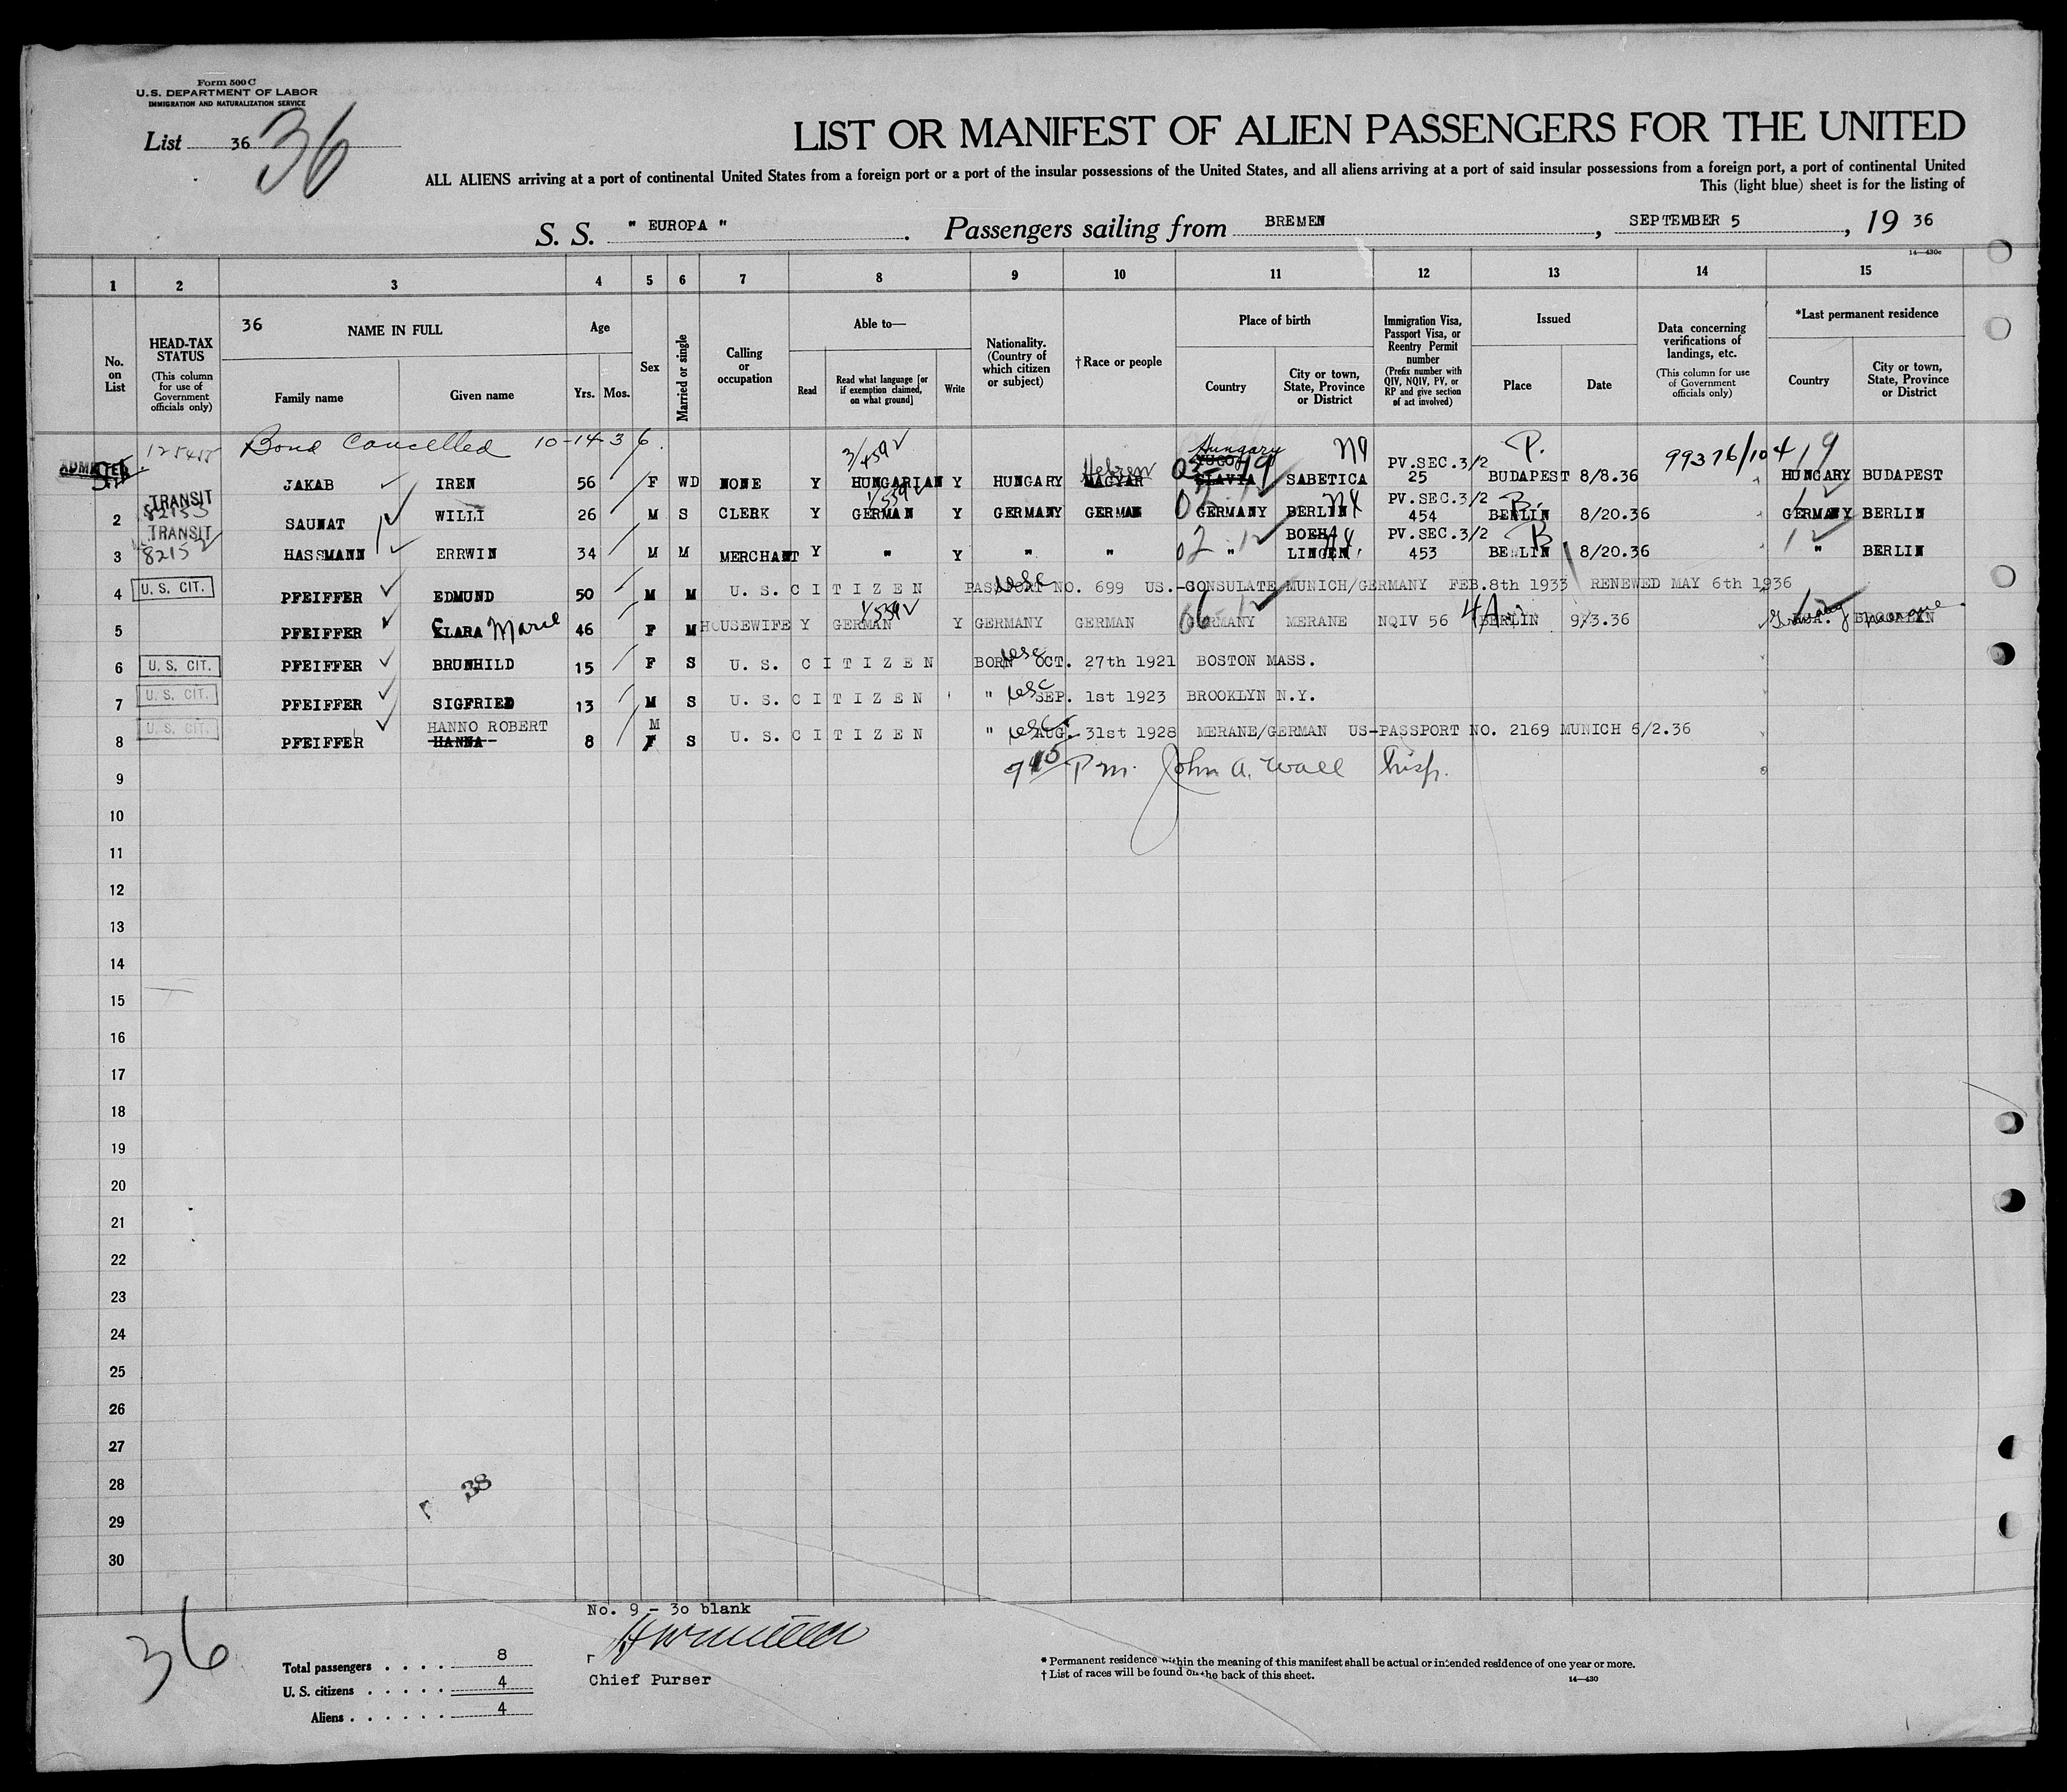 Form 500 C
U.S. DEPARTMENT OF LABOR
IMMIGRATION AND NATURALIZATION SERVICE
List 36 36
LIST OR MANIFEST OF ALIEN PASSENGERS FOR THE UNITED
ALL ALIENS arriving at a port of continental United States from a foreign port or a port of the insular possessions of the United States, and all aliens arriving at a port of said insular possessions from a foreign port, a port of continental United
This (light blue) sheet is for the listing of
S. S. " EUROPA ". Passengers sailing from BREMEN, SEPTEMBER 5, 19 36
14—430c
1 2 3 4 5 6 7 8 9 10 11 12 13 14 15
No. on List
HEAD-TAX STATUS (This column for use of Government officials only)
36 NAME IN FULL
Family name Given name
Age Yrs. Mos.
Sex
Married or single
Calling or occupation
Able to—
Read Read what language [or if exemption claimed, on what ground] Write
Nationality. (Country of which citizen or subject)
† Race or people
Place of birth
Country City or town, State, Province or District
Immigration Visa, Passport Visa, or Reentry Permit number (Prefix number with QIV, NQIV, PV, or RP and give section of act involved)
Issued
Place Date
Data concerning verifications of landings, etc. (This column for use of Government officials only)
*Last permanent residence
Country City or town, State, Province or District
Bond Cancelled 10-14-36. Hungary P.
ADMITTED JAKAB IREN 56 F WD NONE Y HUNGARIAN Y HUNGARY Hebrew MAGYAR YUGO SLAVIA SABETICA PV.SEC.3/2 25 BUDAPEST 8/8.36 99376/104 HUNGARY BUDAPEST
TRANSIT 2 SAUNAT WILLI 26 M S CLERK Y GERMAN Y GERMANY GERMAN GERMANY BERLIN PV.SEC.3/2 454 BERLIN 8/20.36 GERMANY BERLIN
TRANSIT 3 HASSMANN ERRWIN 34 M M MERCHANT Y " Y " " " PV.SEC.3/2 453 BERLIN 8/20.36 " BERLIN
4 U. S. CIT. PFEIFFER EDMUND 50 M M U. S. CITIZEN PASSPORT NO. 699 US.-CONSULATE MUNICH/GERMANY FEB.8th 1933 RENEWED MAY 6th 1936
5 PFEIFFER CLARA Marie 46 F M HOUSEWIFE Y GERMAN Y GERMANY GERMAN GERMANY MERANE NQIV 56 BERLIN 9/3.36 Germany
6 U. S. CIT. PFEIFFER BRUNHILD 15 F S U. S. CITIZEN BORN OCT. 27th 1921 BOSTON MASS.
7 U. S. CIT. PFEIFFER SIGFRIED 13 M S U. S. CITIZEN " SEP. 1st 1923 BROOKLYN N.Y.
8 U. S. CIT. PFEIFFER HANNO ROBERT HANNA 8 M F S U. S. CITIZEN " AUG. 31st 1928 MERANE/GERMAN US-PASSPORT NO. 2169 MUNICH 6/2.36
9 Pm. John A. Wall Insp.
10
11
12
13
14
15
16
17
18
19
20
21
22
23
24
25
26
27
28
38
29
30
36
No. 9 - 30 blank
Total passengers . . . . 8
U. S. citizens . . . . . 4
Aliens . . . . . . 4
Chief Purser
* Permanent residence within the meaning of this manifest shall be actual or intended residence of one year or more.
† List of races will be found on the back of this sheet.
14—430